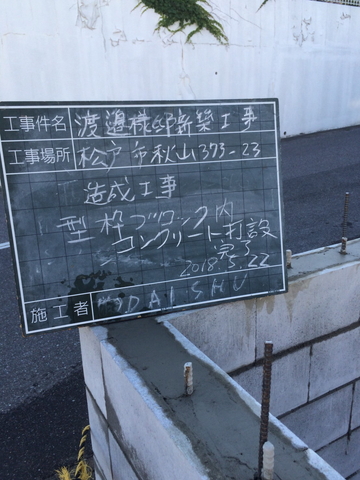 工事件名 渡邉様邸新築工事
工事場所 松戸市秋山373-23
造成工事
型枠ブロック内
コンクリート打設
完了
2018.5.22
施工者 DAISHU